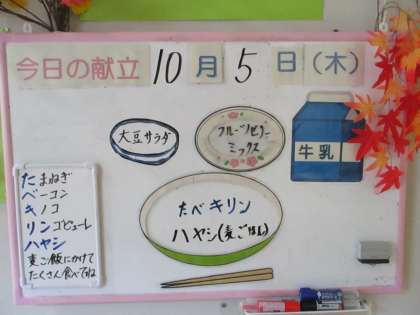 今日の献立 10月5日(木)
大豆サラダ
フルーツゼリー
ミックス
牛乳
たべキリン
ハヤシ(麦ごはん)
たまねぎ
ベーコン
キノコ
リンゴピューレ
ハヤシ
麦ご飯にかけて
たくさん食べてね